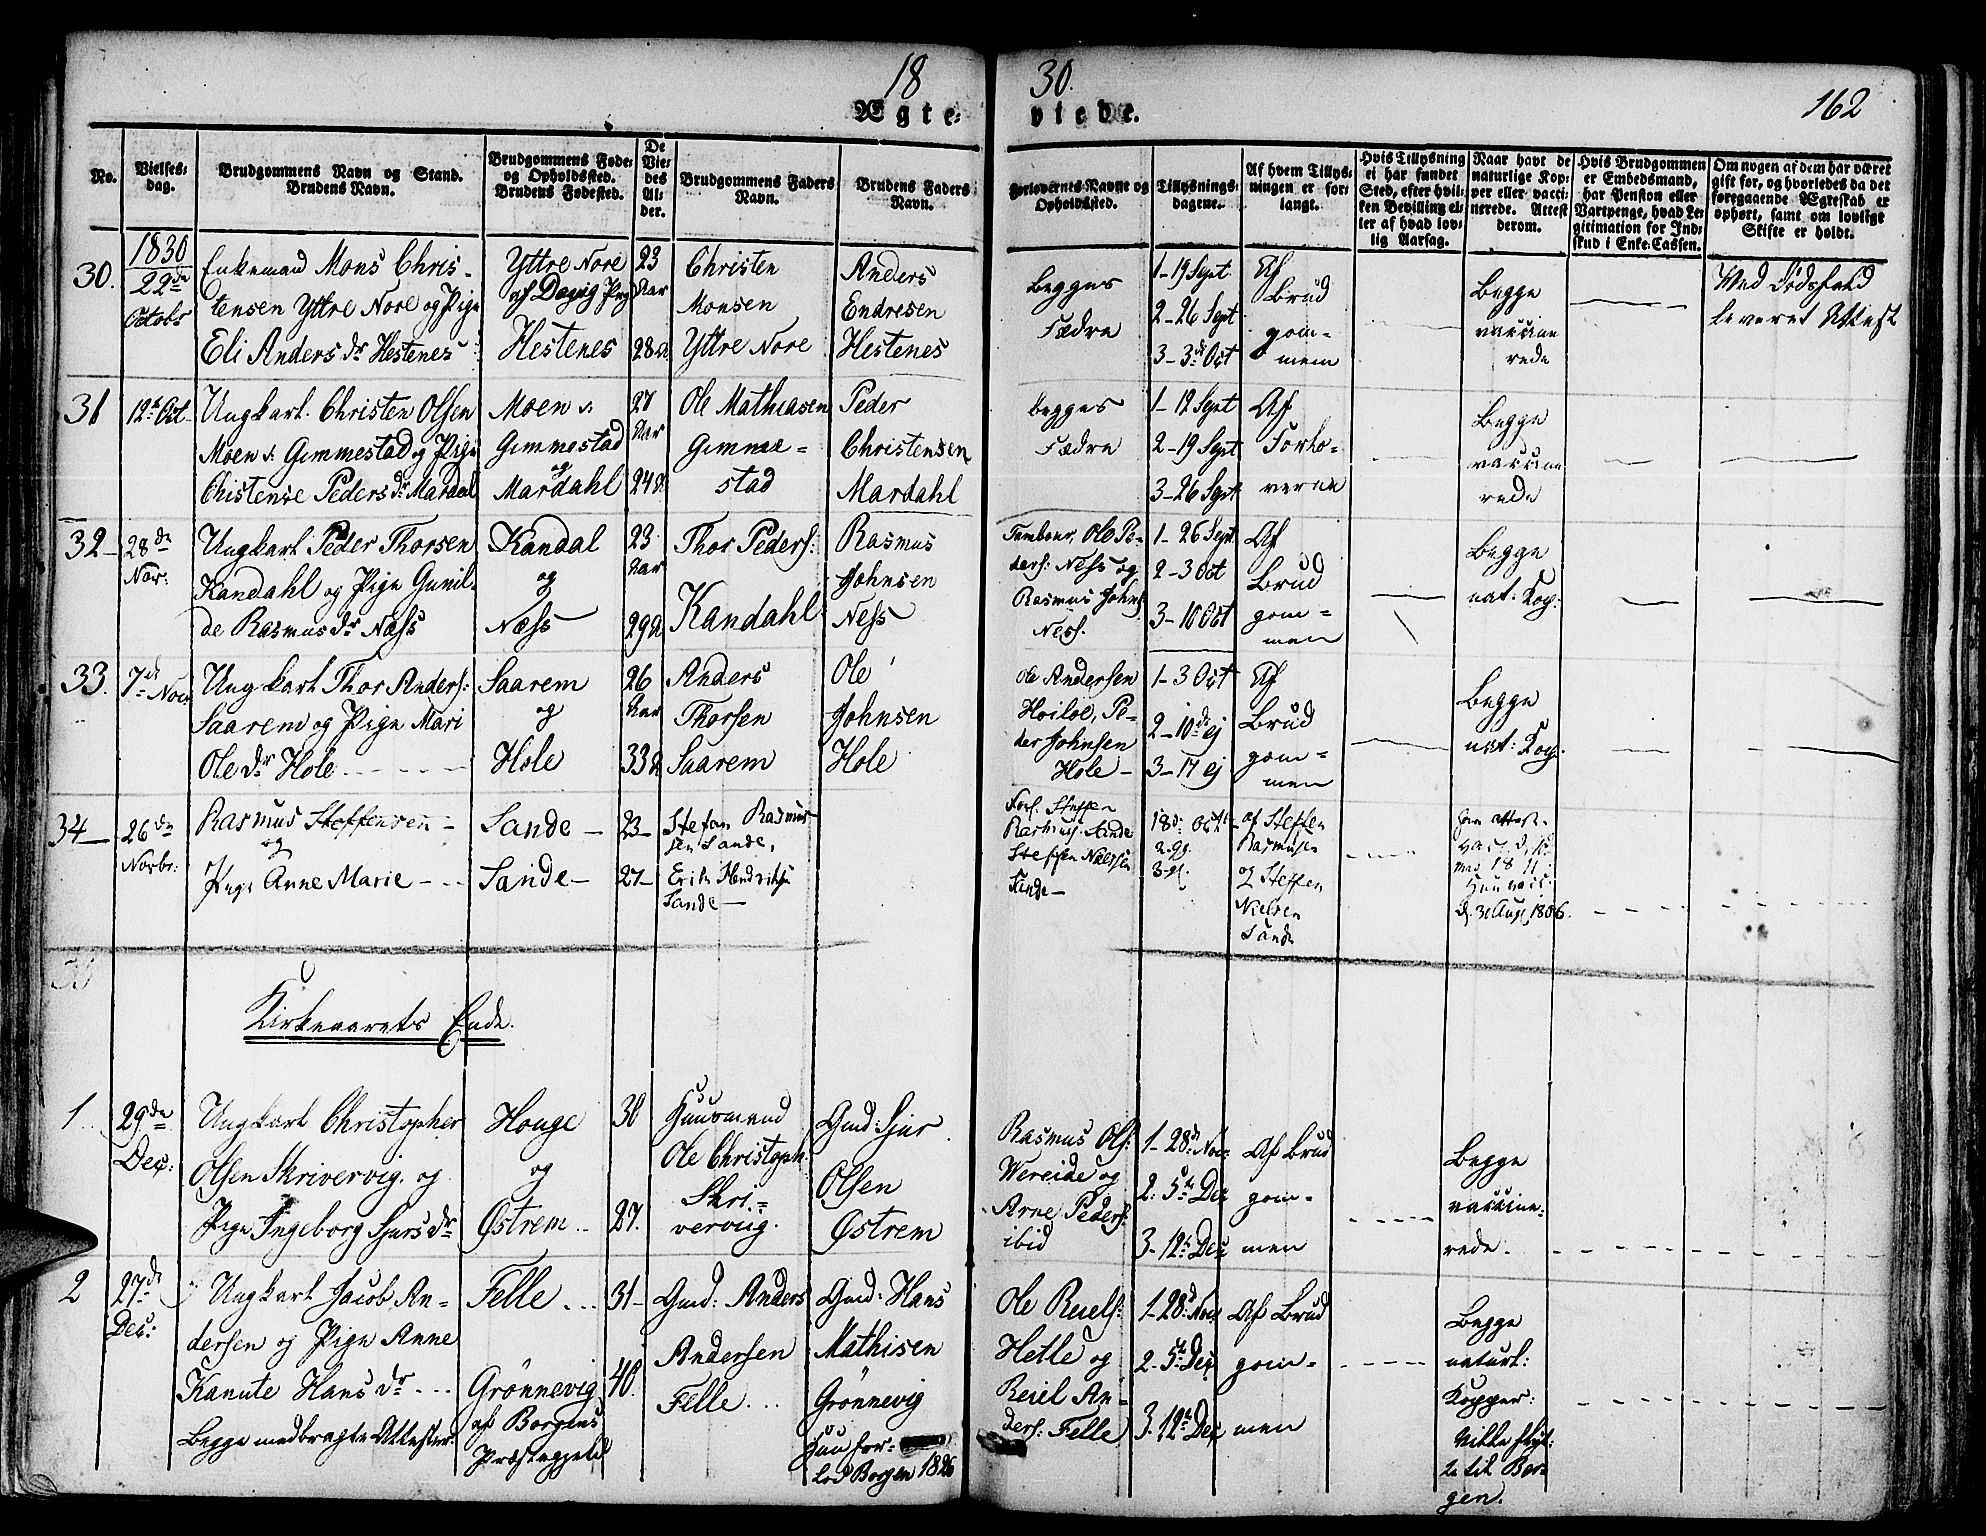 18 30.
162
Ægte- viede.
No.
Vielses-
dag.
Brudgommens Navn og Stand.
Brudens Navn.
Brudgommens Føde-
og Opholdssted.
Brudens Fødested.
De
Vie-
des
Al-
der.
Brudgommens Faders
Navn.
Brudens Faders
Navn.
Forlovernes Navne og
Opholdssted.
Tillysnings-
dagene.
Af hvem Tillys-
ningen er for-
langt.
Hvis Tillysning
ei har fundet
Sted, efter hvil-
ken Bevilling el-
ler af hvad lov-
lig Aarsag.
Naar havt de
naturlige Kop-
per eller vacci-
nerede. Attest
derom.
Hvis Brudgommen
er Embedsmand,
har Pension eller
Vartpenge, hvad Le-
gitimation for Ind-
skud i Enke-Cassen.
Om nogen af dem har været
gift før, og hvorledes da det
foregaaende Ægteskab er
ophørt, samt om lovligt
Skifte er holdt.
30.
1830
22de
Octobr
Enkemand Mons Chris-
tensen Yttre Nore og Pige
Eli Anders dr Hestenes
Yttre Nore
Hestenes
23
Aar
28
Christen
Monsen
Yttre Nore
Anders
Endresen
Hestenes
Begges
Fædre
1-19 Sept
2-26 Sept
3-3de Oct
Af
Brud
gom-
mem
Begge
vaccine
rede
Ved Dødsfald
leveret Attest
31
12te Oct.
Ungkarl. Christen Olsen
Moen v. Gimmestad og Pige
Christense Peders dr Mardal
Moen v.
Gimmestad
og
Mardahl
27
Aar
24
Ole Mathiasen
Gimme-
stad
Peder
Christensen
Mardahl
Begges
Fædre
1-12 Sept
2-19 Sept
3-26 Sept
Af
Forlo-
verne
Begge
vaccine
rede
32
28de
Nov:
Ungkarl Peder Thorsen
Kandahl og Pige Gunil-
de Rasmus dr Næss
Kandal
og
Næss
23
Aar
29
Thor Peders:
Kandahl
Rasmus
Johnsen
Ness
Tambour, Ole Pe-
ders: Ness og
Rasmus Johns:
Ness.
1-26 Sept
2-3 Oct
3-10 Oct
Af
Brud
gom-
men
Begge
nat: Kop:
33.
7de Nov
Ungkarl Thor Anders:
Saarem og Pige Mari
Ole dr Hole
Saarem
og
Hole
26
Aar
33
Anders
Thorsen
Saarem
Ole
Johnsen
Hole
Ole Andersen
Hoiloe, Pe-
der Johnsen
Hole
1-3 Oct
2-10de ej
3-17 ej
Af
Brud
gom-
men
Begge
nat: Kop.
34
26de
Novbr:
Rasmus Steffensen
og
Pige Anne Marie
Sande
Sande
23
27
Stefan Rasmus-
sen Sande,
Erik Hendriks
Sande
Forl. Steffen
Rasmuss. Sande
Steffen Nielsen
Sande
18de Oct
af Steffen
Rasmusen
Steffen
Nielsen
Sande
d. 31 Aug 1806.
Kirkeaarets Ende.
1
29de
Dec:
Ungkarl Christopher
Olsen Skrivervig. og
Pige Ingeborg Sjurs dr
Houge
og
Østrem
30
27.
Huusmand
Ole Christoph:
Skri-
vervug.
Gmd: Sjur
Olsen
Østrem
Rasmus Ols:
Wereide og
Arne Peders:
ibid
1-28de Nov
2. 5te Dec
3-12te Dec
Af Brud
gom-
men
Begge
vaccine-
rede.
2
27de
Dec:
Ungkarl Jacob An-
dersen og Pige Anne
Kanute Hans dr
Begge medbragte Attester
Felle
Grønnevig
af Borgens
Præstegjeld
31
40.
Gmd: Anders
Andersen
Felle
Gmd. Hans
Mathisen
Grønnevig
Huu for-
lod Borgen 1826
Ole Reiels:
Hetle og
Reiel An-
ders: Felle
1-28de Nov
2-5te Dec
3. 12te Dec
Af Brud
gom-
men
Begge
naturl:
Kopper:
til Ber-
gen.